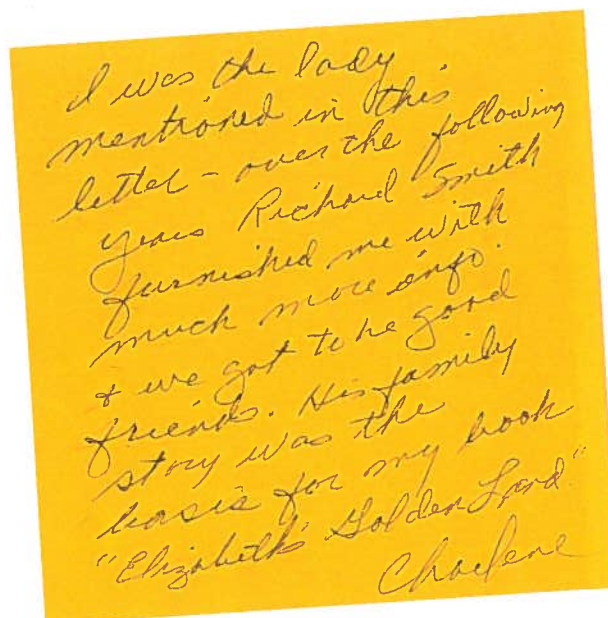 I was the lady
mentioned in this
letter - over the following
years Richard Smith
furnished me with
much more info.
& we got to be good
friends. His family
story was the
basis for my book
"Elizabeth's Golden Land"
Charlene